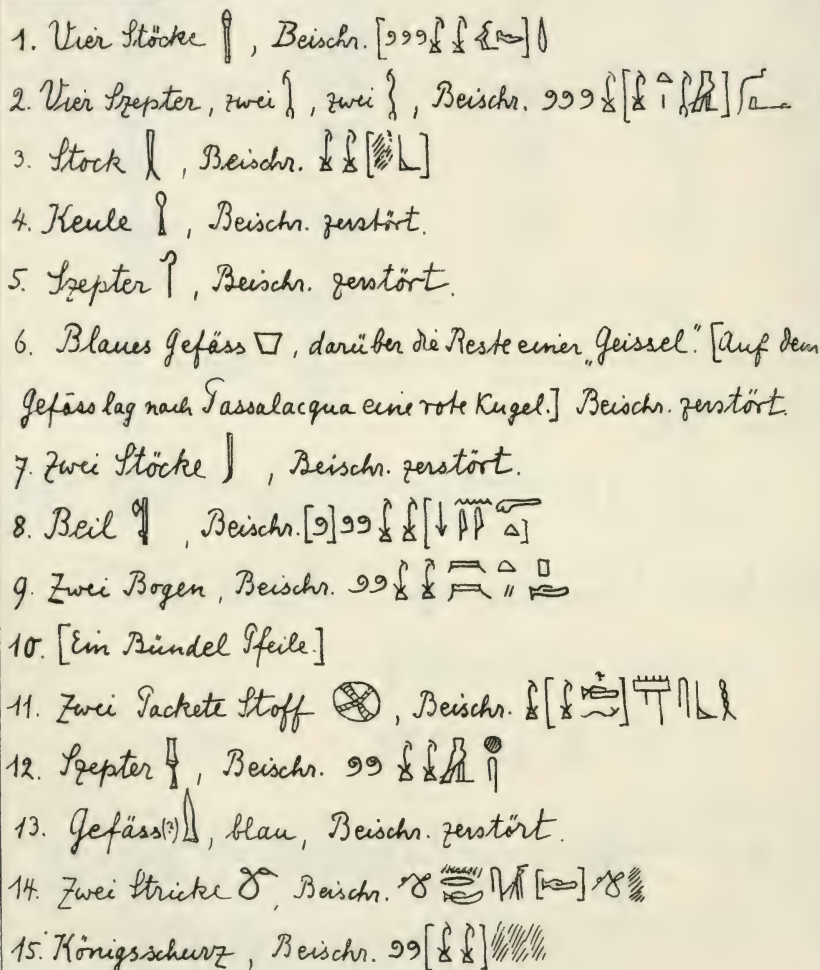 1. Vier Stöcke , Beischr. [999 ]
2. Vier Szepter, zwei , zwei , Beischr. 999 [ ]
3. Stock , Beischr. [ ]
4. Keule , Beischr. zerstört.
5. Szepter , Beischr. zerstört.
6. Blaues Gefäss , darüber die Reste einer „Geissel". [Auf dem
Gefäss lag nach Passalacqua eine rote Kugel.] Beischr. zerstört.
7. Zwei Stöcke , Beischr. zerstört.
8. Beil , Beischr. [9]99 [ ]
9. Zwei Bogen, Beischr. 99
10. [Ein Bündel Pfeile.]
11. Zwei Packete Stoff , Beischr. [ ]
12. Szepter , Beischr. 99
13. Gefäss(?) , blau, Beischr. zerstört.
14. Zwei Stricke , Beischr. [ ]
15. Königsschurz , Beischr. 99 [ ]